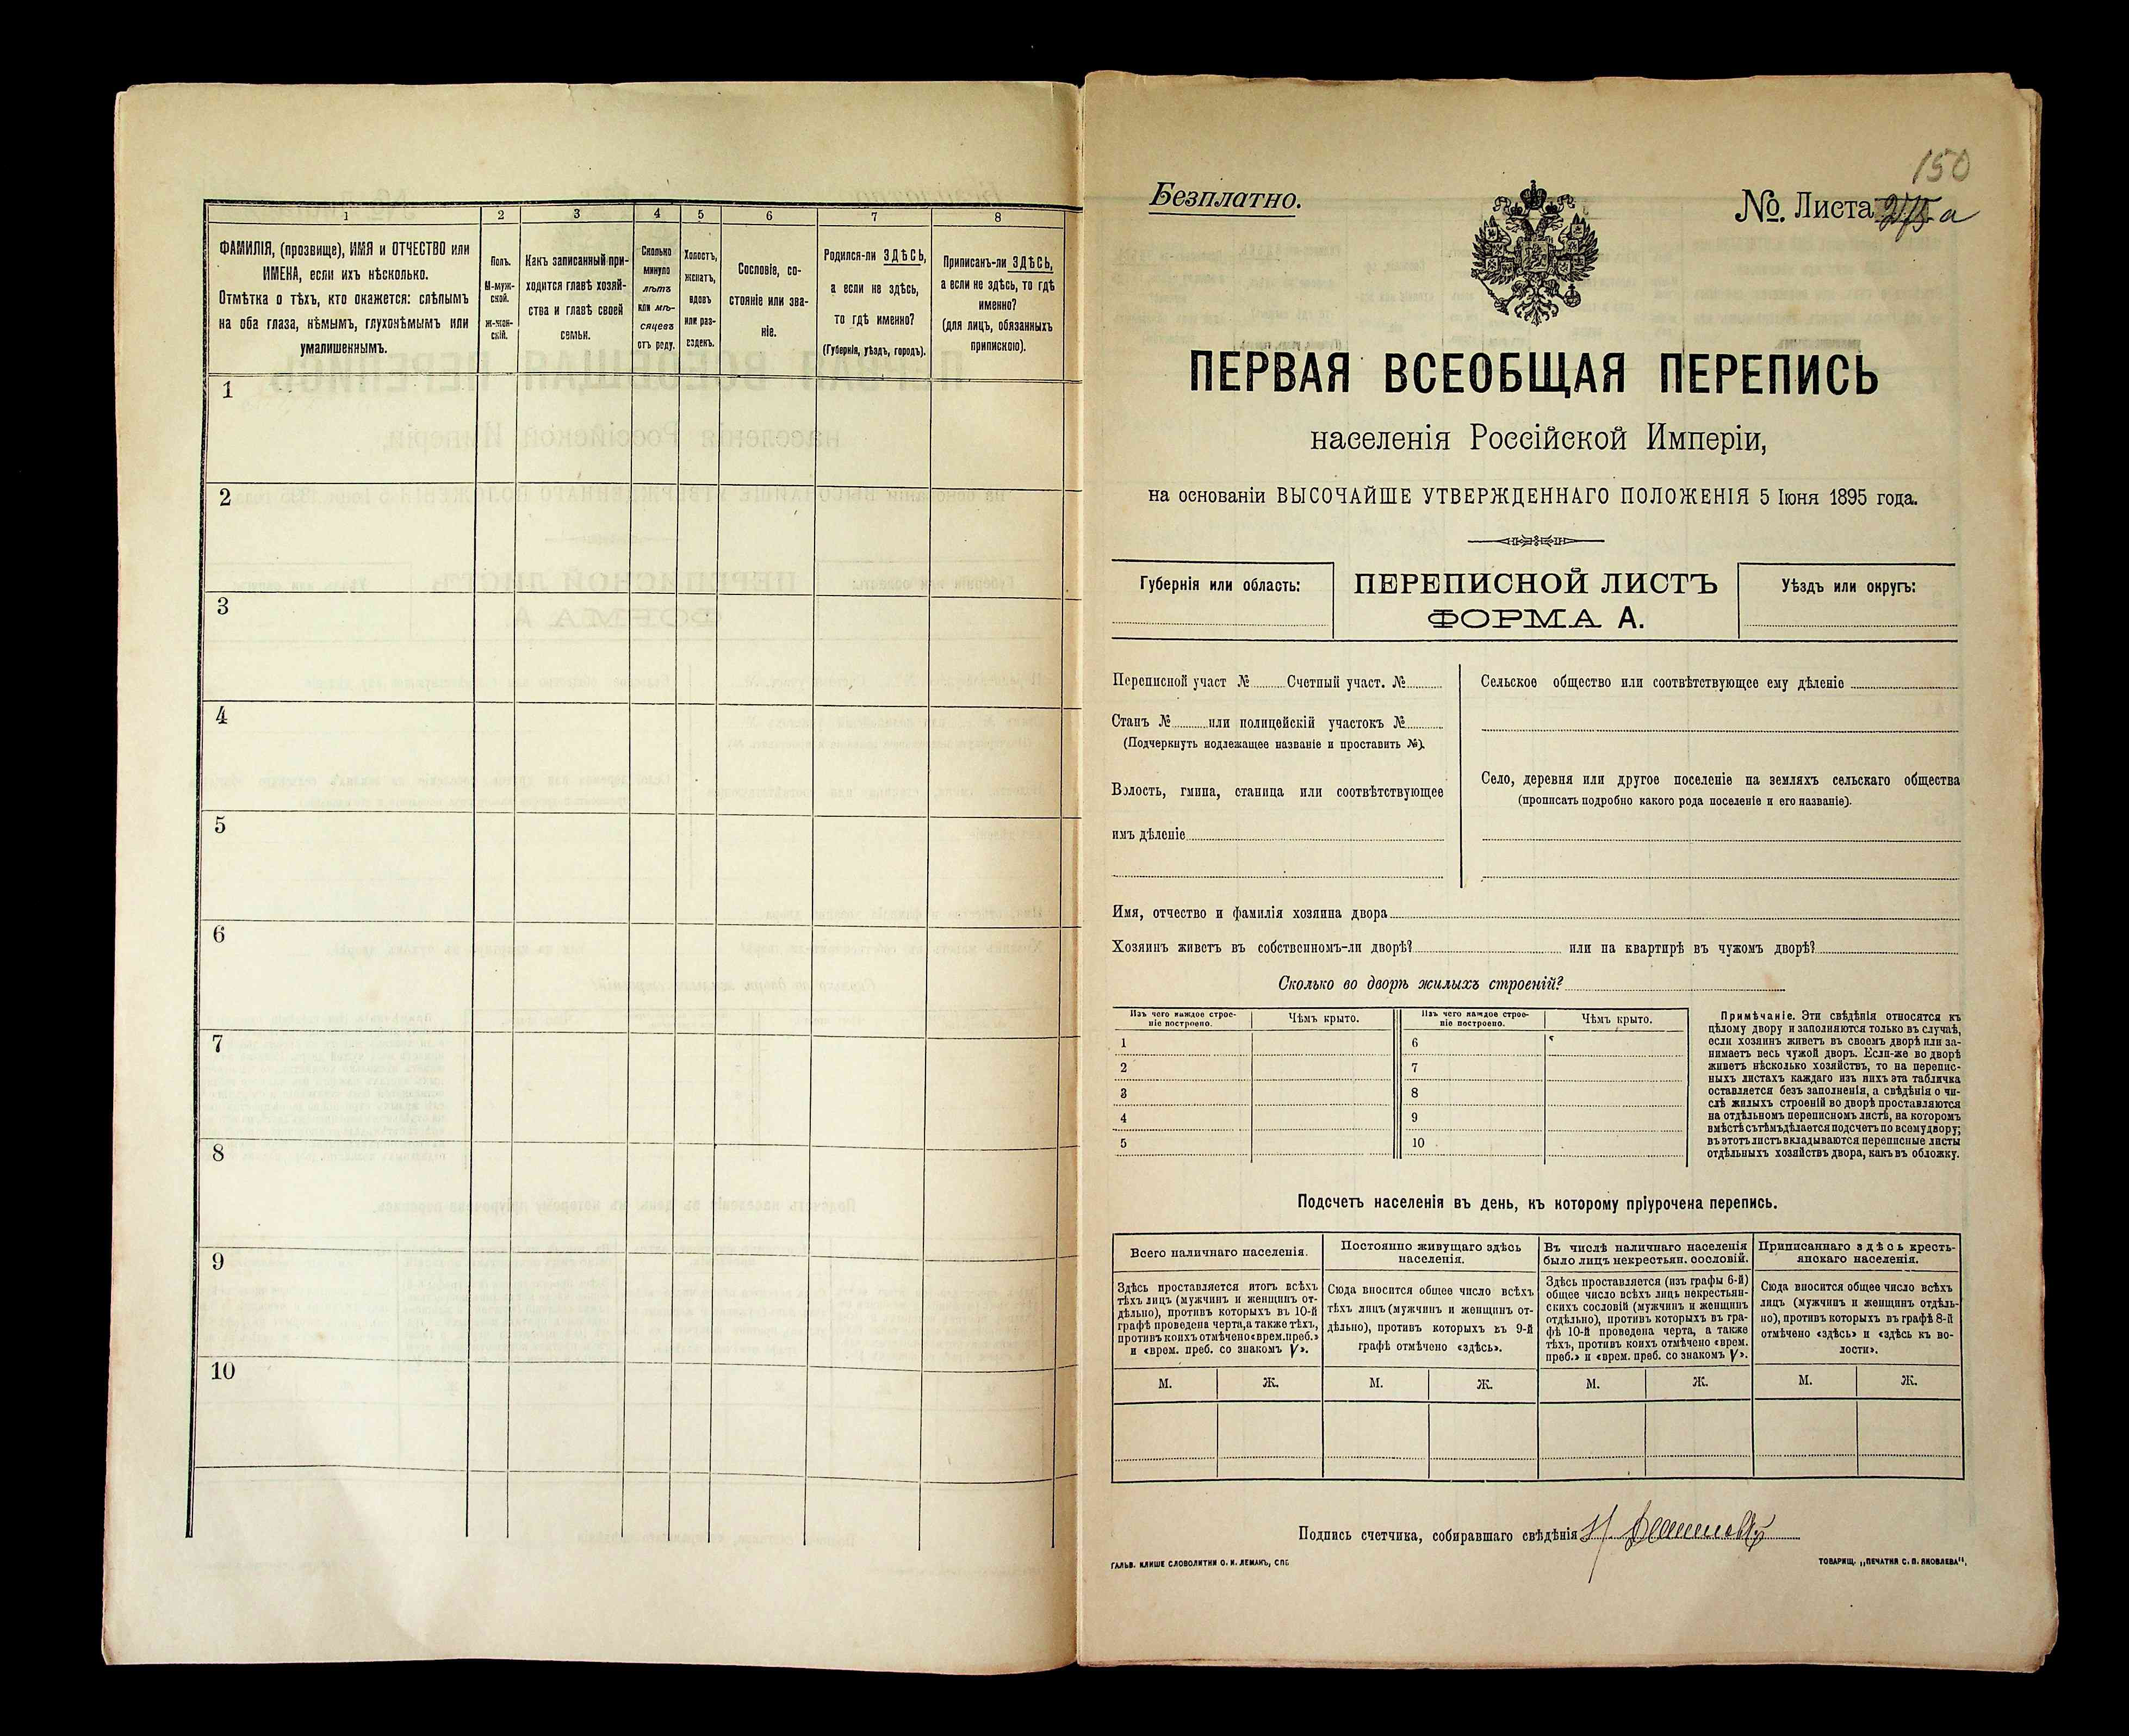 1
2
3
4
5
6
7
8
ФАМИЛІЯ, (прозвище), ИМЯ и ОТЧЕСТВО или
ИМЕНА, если ихъ нѣсколько.
Отмѣтка о тѣхъ, кто окажется: слѣпымъ
на оба глаза, нѣмымъ, глухонѣмымъ или
умалишеннымъ.
Полъ.
М-муж-
ской.
Ж-жен-
скій.
Какъ записанный при-
ходится главѣ хозяй-
ства и главѣ своей
семьи.
Сколько
минуло
лѣтъ
или мѣ-
сяцевъ
отъ роду.
Холостъ,
женатъ,
вдовъ
или раз-
веденъ.
Сословіе, со-
стояніе или зва-
ніе.
Родился-ли ЗДѢСЬ,
а если не здѣсь,
то гдѣ именно?
(Губернія, уѣздъ, городъ).
Приписанъ-ли ЗДѢСЬ,
а если не здѣсь, то гдѣ
именно?
(для лицъ, обязанныхъ
припискою).
1
2
3
4
5
6
7
8
9
10
150
Безплатно.
№ Листа а
ПЕРВАЯ ВСЕОБЩАЯ ПЕРЕПИСЬ
населенія Россійской Имперіи,
на основаніи ВЫСОЧАЙШЕ УТВЕРЖДЕННАГО ПОЛОЖЕНІЯ 5 Іюня 1895 года.
Губернія или область:
ПЕРЕПИСНОЙ ЛИСТЪ
ФОРМА А.
Уѣздъ или округъ:
Переписной участ № Счетный участ. №
Станъ № или полицейскій участокъ №
(Подчеркнуть подлежащее названіе и проставить №).
Волость, гмина, станица или соотвѣтствующее
имъ дѣленіе
Сельское общество или соотвѣтствующее ему дѣленіе
Село, деревня или другое поселеніе на земляхъ сельскаго общества
(прописать подробно какого рода поселеніе и его названіе).
Имя, отчество и фамилія хозяина двора
Хозяинъ живетъ въ собственномъ-ли дворѣ? или на квартирѣ въ чужомъ дворѣ?
Сколько во дворѣ жилыхъ строеній?
Изъ чего каждое строе-
ніе построено.
Чѣмъ крыто.
Изъ чего каждое строе-
ніе построено.
Чѣмъ крыто.
1
2
3
4
5
6
7
8
9
10
Примѣчаніе. Эти свѣдѣнія относятся къ
цѣлому двору и заполняются только въ случаѣ,
если хозяинъ живетъ въ своемъ дворѣ или за-
нимаетъ весь чужой дворъ. Если-же во дворѣ
живетъ нѣсколько хозяйствъ, то на перепис-
ныхъ листахъ каждаго изъ нихъ эта табличка
оставляется безъ заполненія, а свѣдѣнія о чи-
слѣ жилыхъ строеній во дворѣ проставляются
на отдѣльномъ переписномъ листѣ, на которомъ
вмѣстѣ съ тѣмъ дѣлается подсчетъ по всему двору;
въ этотъ листъ вкладываются переписные листы
отдѣльныхъ хозяйствъ двора, какъ въ обложку.
Подсчетъ населенія въ день, къ которому пріурочена перепись.
Всего наличнаго населенія.
Здѣсь проставляется итогъ всѣхъ
тѣхъ лицъ (мужчинъ и женщинъ от-
дѣльно), противъ которыхъ въ 10-й
графѣ проведена черта, а также тѣхъ,
противъ коихъ отмѣчено «врем. преб.»
и «врем. преб. со знакомъ V».
Постоянно живущаго здѣсь
населенія.
Сюда вносится общее число всѣхъ
тѣхъ лицъ (мужчинъ и женщинъ от-
дѣльно), противъ которыхъ въ 9-й
графѣ отмѣчено «здѣсь».
Въ числѣ наличнаго населенія
было лицъ некрестьян. сословій.
Здѣсь проставляется (изъ графы 6-й)
общее число всѣхъ лицъ некрестьян-
скихъ сословій (мужчинъ и женщинъ
отдѣльно), противъ которыхъ въ гра-
фѣ 10-й проведена черта, а также
тѣхъ, противъ коихъ отмѣчено «врем.
преб.» и «врем. преб. со знакомъ V».
Приписаннаго здѣсь кресть-
янскаго населенія.
Сюда вносится общее число всѣхъ
лицъ (мужчинъ и женщинъ отдѣль-
но), противъ которыхъ въ графѣ 8-й
отмѣчено «здѣсь» и «здѣсь къ во-
лости».
М. Ж. М. Ж. М. Ж. М. Ж.
Подпись счетчика, собиравшаго свѣдѣнія
ГАЛЬВ. КЛИШЕ СЛОВОЛИТНИ О. И. ЛЕМАНЪ, СПБ
ТОВАРИЩ. „ПЕЧАТНЯ С. П. ЯКОВЛЕВА“.